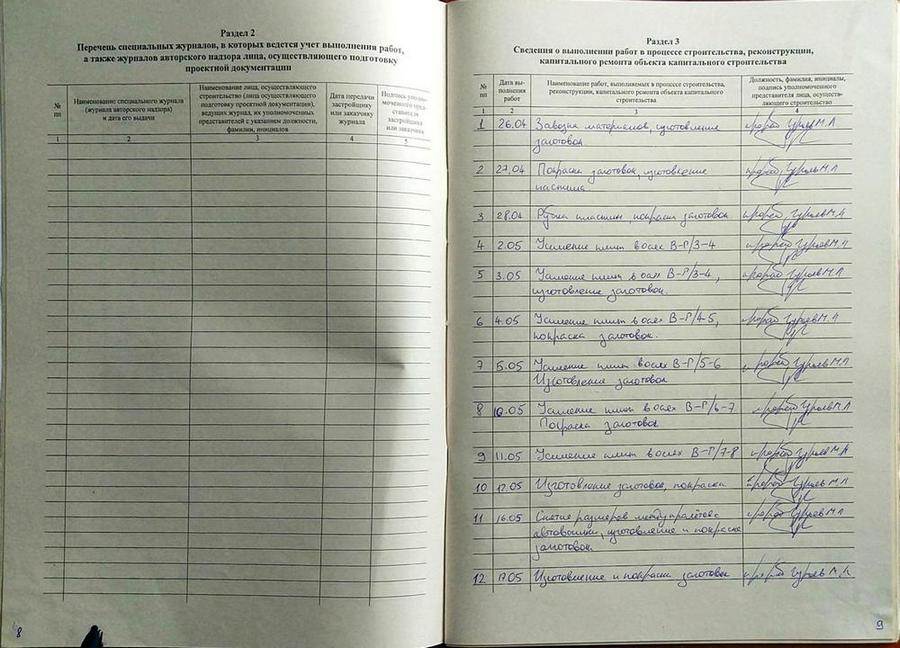 Раздел 2
Перечень специальных журналов, в которых ведется учет выполнения работ,
а также журналов авторского надзора лица, осуществляющего подготовку
проектной документации
№ пп
Наименование специального журнала
(журнала авторского надзора)
и дата его выдачи
Наименование лица, осуществляющего
строительство (лица осуществляющего
подготовку проектной документации),
ведущих журнал, их уполномоченных
представителей с указанием должности,
фамилии, инициалов
Дата передачи
застройщику
или заказчику
журнала
Подпись уполно-
моченного пред-
ставителя
застройщика
или заказчика
1 2 3 4 5
8
Раздел 3
Сведения о выполнении работ в процессе строительства, реконструкции,
капитального ремонта объекта капитального строительства
№ пп
Дата вы-
полнения
работ
Наименование работ, выполняемых в процессе строительства,
реконструкции, капитального ремонта объекта капитального
строительства
Должность, фамилия, инициалы,
подпись уполномоченного
представителя лица, осуществ-
ляющего строительство
1 2 3 4
1 26.04 Завозка материалов, изготовление прораб М.А
заготовок
2 27.04 Покраска заготовок, изготовление прораб М.А
настила
3 28.04 пластин покраска заготовок прораб М.А
4 2.05 Усиление плит в осях В-Г/3-4 прораб М.А
5 3.05 Усиление плит в осях В-Г/3-4, прораб М.А
изготовление заготовок.
6 4.05 Усиление плит в осях В-Г/4-5, прораб М.А
покраска заготовок.
7 5.05 Усиление плит в осях В-Г/5-6 прораб М.А
Изготовление заготовок
8 10.05 Усиление плит в осях В-Г/6-7 прораб М.А
Покраска заготовок
9 11.05 Усиление плит в осях В-Г/7-8 прораб М.А
10 12.05 Изготовление заготовок, покраска прораб М.А
11 16.05 Снятие размеров между прораб М.А
автовышки, изготовление и покраска
заготовок.
12 17.05 Изготовление и покраска заготовок прораб М.А
9